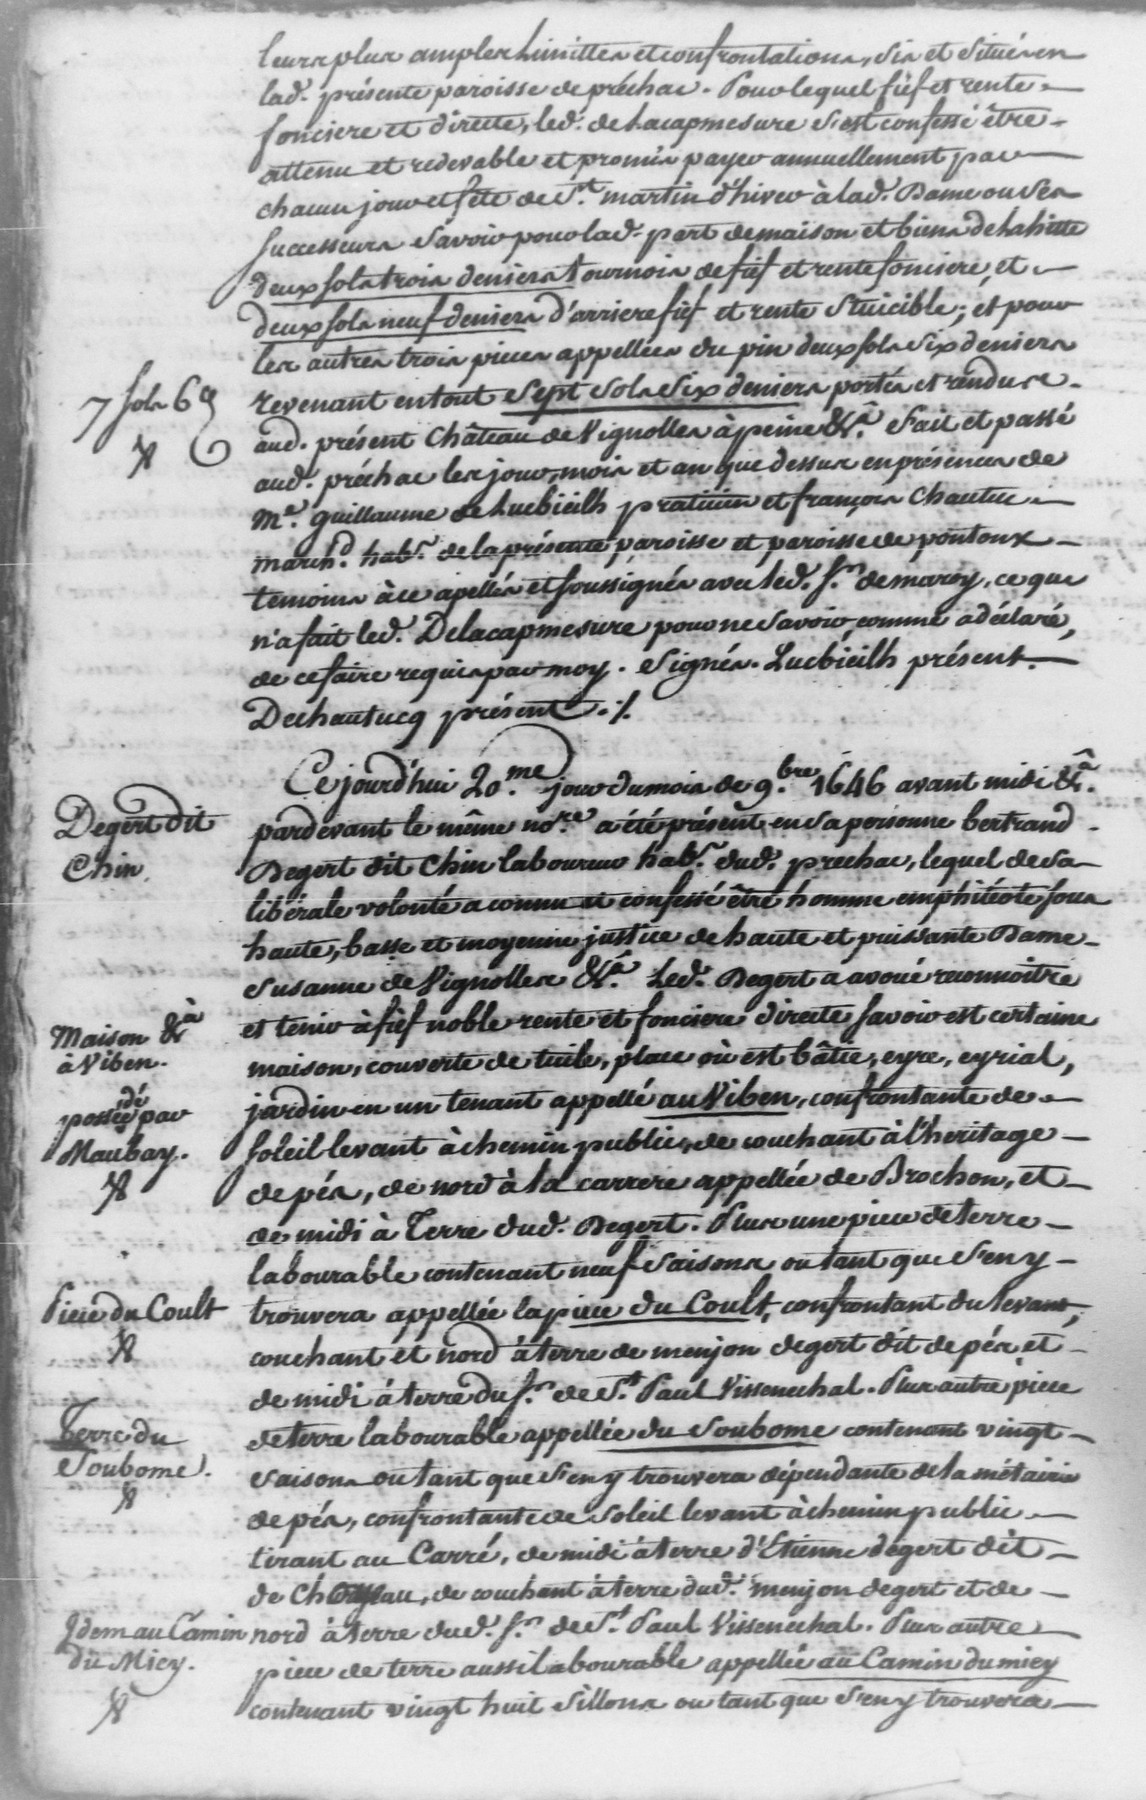 leurs plus amples limittes et confrontations, sis et situés en
lad. présente paroisse de préchac. Pour lequel fief et rente
fonciere et directe, led. de Lacapmesure s'est confessé être
attenu et redevable et promis payer annuellement par
chacun jour et fête de St. martin d'hiver à lad. Dame ou ses
successeurs savoir pour lad. part de maison et biens de Lahitte
deux sols trois deniers tournois de fief et rente fonciere, et
deux sols neuf deniers d'arriere fief et rente ; et pour
les autres trois pieces appellées du pin deux sols six deniers
7 sols 6 d
revenant en tout sept sols six deniers portés et rendus
aud. présent Château de Vignolles à peine &a. fait et passé
aud. préchac les jour, mois et an que dessus en présences de
Me. guillaume de Lucbieilh praticien et françois Chautuc
march.d hab.s de la présente paroisse et paroisse de pontonx
temoins à ce apellés et soussignés avec led. sr. de maroy, ce que
n'a fait led. Delacapmesure pour ne savoir, comme a déclaré,
de ce faire requis par moy. Signés. Lucbieilh présent.
Dechautucq présent ./.
Ce jourd'hui 20.me jour du mois de 9.bre 1646 avant midi &a.
Degert dit
Chin.
pardevant le même no.re a été présent en sa personne bertrand
Degert dit Chin laboureur hab.t dud. prechac, lequel de sa
libérale volonté a connu et confessé être homme emphitéote sous
haute, basse et moyenne justice de haute et puissante Dame
Susanne de Vignolles &a. Led. Degert a avoué reconnoitre
Maison &a
à Viben.
possédé par
Maubay.
et tenir à fief noble rente et fonciere directe savoir est certaine
maison, couverte de tuile, place où est bâtie, eyre, eyrial,
jardin en un tenant appellé au Viben, confrontante de
soleil levant à chemin public, de couchant à l'heritage
de pés, de nord à la carrere appellée de Brochon, et
de midi à Terre dud. Degert. Plus une piece de terre
labourable contenant neuf saisons ou tant que s'en y
Piece du Coult
trouvera appellée la piece du Coult, confrontant du levant,
couchant et nord à terre de menjon degert dit de pés et
de midi à terre du sr. de St. Paul Vissenechal. Plus autre piece
Terre du
Soubome.
de terre labourable appellée du Soubome contenant vingt
saisons ou tant que s'en y trouvera dépendante de la métairie
de pés, confrontante de soleil levant à chemin public
tirant au Carré, de midi à terre d'Etienne degert dit
de , de couchant à terre dud. menjon degert et de
Idem au Camin
du Miey.
nord à terre dud. sr. de St. Paul Vissenechal. Plus autre
piece de terre aussi labourable appellée au Camin du miey
contenant vingt huit sillons ou tant que s'en y trouvera